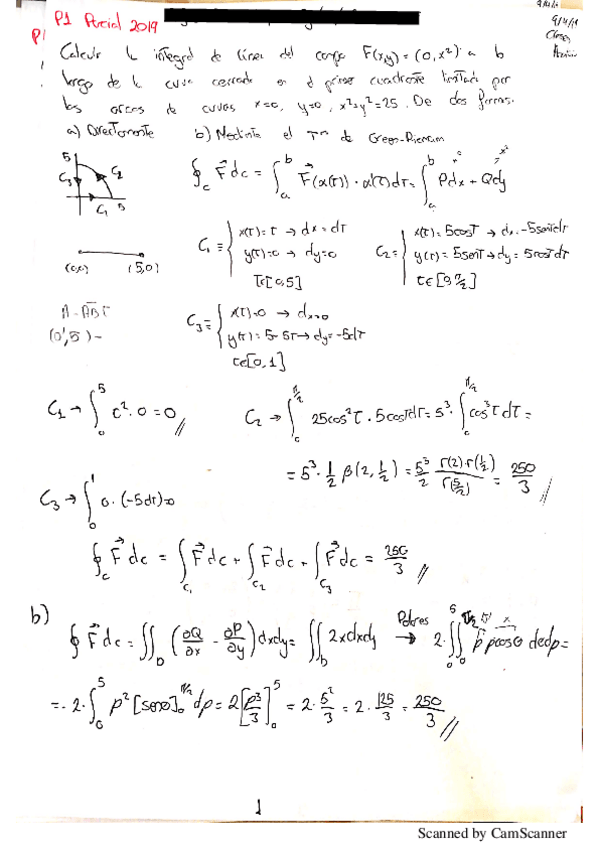 P1 Parcial 2019
9/4/19
P1
Calcular la integral de línea del campo F(x,y) = (0, x²) a lo
largo de la curva cerrada en el primer cuadrante limitada por
los arcos de curvas x=0, y=0, x²+y²=25. De dos formas.
a) Directamente b) Mediante el Tma de Green-Riemann
5 C₃ C₂ C₁ 5
∮_C F⃗ dc = ∫_a^b F⃗(α(t))·α'(t)dt = ∫_a^b Pdx + Qdy
C₁ ≡ { x(t)=t → dx=dt
y(t)=0 → dy=0
t∈[0,5]
C₂ ≡ { x(t)=5cost → dx=-5sentdt
y(t)=5sent → dy=5costdt
t∈[0,π/2]
(0,0) (5,0)
C₃ ≡ { x(t)=0 → dx=0
y(t)=5-5t → dy=-5dt
t∈[0,1]
(0,5) -
C₁ → ∫_0^5 t²·0 = 0 //
C₂ → ∫_0^{π/2} 25cos²t·5costdt = 5³·∫_0^{π/2} cos³t dt =
= 5³·1/2 β(2,1/2) = 5³/2 Γ(2)·Γ(1/2)/Γ(5/2) = 250/3 //
C₃ → ∫_0^1 0·(-5dt)=0
∮_C F⃗ dc = ∫_{C₁} F⃗ dc + ∫_{C₂} F⃗ dc + ∫_{C₃} F⃗ dc = 250/3 //
b)
∮ F⃗ dc = ∬_D (∂Q/∂x - ∂P/∂y) dxdy = ∬_D 2xdxdy Polares → 2·∫_0^5 ∫_0^{π/2} ρ ρcosθ dθdρ =
= 2·∫_0^5 ρ² [senθ]_0^{π/2} dρ = 2[ρ³/3]_0^5 = 2·5³/3 = 2·125/3 = 250/3 //
1
Scanned by CamScanner